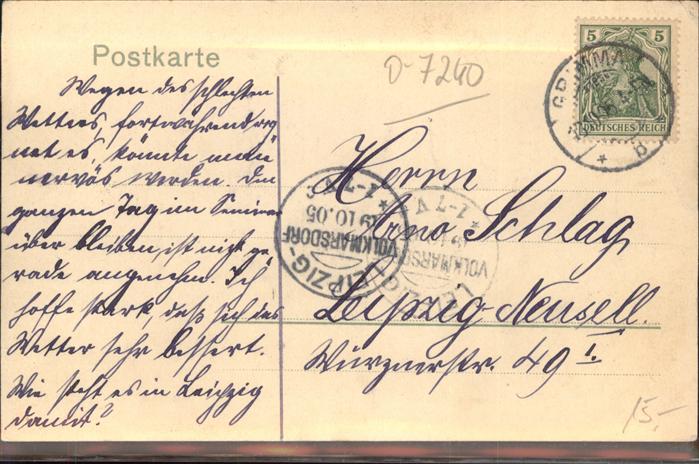 Postkarte
D-7240
5 5
DEUTSCHES REICH
GRIMMA
Wegen des schlechten
Wetters, fortwährend reg
net es, könnte man
nervös werden. Den
ganzen Tag im Seminar
über bleiben, ist nicht ge
rade angenehm. Ich
hoffe stark, daß sich das
Wetter sehr bessert.
Wie steht es in Leipzig
damit?
Herrn
Arno Schlag
Leipzig-Neusell.
Wurznerstr. 49 I.
LEIPZIG-
VOLKMARSDORF
19.10.05
1-7V
VOLKMARSDORF
1-7V
15,-